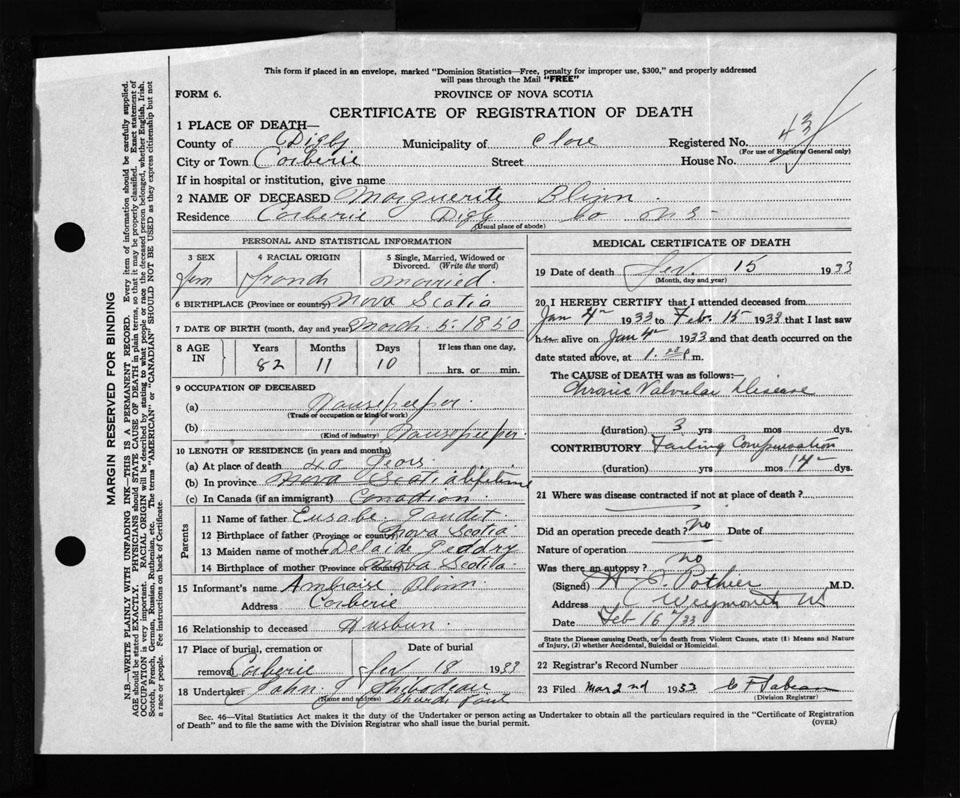 This form if placed in an envelope, marked "Dominion Statistics—Free, penalty for improper use, $300," and properly addressed
will pass through the Mail "FREE"
FORM 6.
PROVINCE OF NOVA SCOTIA
CERTIFICATE OF REGISTRATION OF DEATH
1 PLACE OF DEATH—
County of Digby Municipality of Clare Registered No. 43
(For use of Registrar General only)
City or Town Corberie Street House No.
If in hospital or institution, give name
2 NAME OF DECEASED Marguerite Blinn
Residence Corberie Digy Co N S
(Usual place of abode)
PERSONAL AND STATISTICAL INFORMATION
3 SEX 4 RACIAL ORIGIN 5 Single, Married, Widowed or
Divorced. (Write the word)
Fem French married
6 BIRTHPLACE (Province or country) Nova Scotia
7 DATE OF BIRTH (month, day and year) March 5. 1850
8 AGE IN Years Months Days If less than one day,
82 11 10 hrs. or min.
9 OCCUPATION OF DECEASED
(a) Housekeeper
(Trade or occupation or kind of work)
(b) Housekeeper
(Kind of industry)
10 LENGTH OF RESIDENCE (in years and months)
(a) At place of death 40 Years
(b) In province Nova Scotia lifetime
(c) In Canada (if an immigrant) Canadian
Parents
11 Name of father Eusabe
12 Birthplace of father (Province or country) Nova Scotia
13 Maiden name of mother Delaide
14 Birthplace of mother (Province or country) Nova Scotia
15 Informant's name Ambroise Blinn
Address Corberie
16 Relationship to deceased Husbun
17 Place of burial, cremation or Date of burial
removal Corberie Fev 18 1933
18 Undertaker John J Thibodeau
(Name and address) Church Point
MEDICAL CERTIFICATE OF DEATH
19 Date of death Fev. 15 1933
(Month, day and year)
20 I HEREBY CERTIFY that I attended deceased from
Jan 4th 1933 to Feb. 15 1933 that I last saw
her alive on Jan 4th 1933 and that death occurred on the
date stated above, at 1. p m.
The CAUSE of DEATH was as follows:—
Chronic Valvular Disease
(duration) 3 yrs mos dys.
CONTRIBUTORY Failing Compensation
(duration) yrs mos 14 dys.
21 Where was disease contracted if not at place of death?
Did an operation precede death? no Date of
Nature of operation
Was there an autopsy? no
(Signed) Pothier M.D.
Address Weymouth
Date Feb 16th/33
State the Disease causing Death, or in death from Violent Causes, state (1) Means and Nature
of Injury, (2) whether Accidental, Suicidal or Homicidal.
22 Registrar's Record Number
23 Filed Mar 2nd 1933
(Division Registrar)
Sec. 46—Vital Statistics Act makes it the duty of the Undertaker or person acting as Undertaker to obtain all the particulars required in the "Certificate of Registration
of Death" and to file the same with the Division Registrar who shall issue the burial permit.
(OVER)
MARGIN RESERVED FOR BINDING
N.B.—WRITE PLAINLY WITH UNFADING INK—THIS IS A PERMANENT RECORD. Every item of information should be carefully supplied.
AGE should be stated EXACTLY. PHYSICIANS should STATE CAUSE OF DEATH in plain terms, so that it may be properly classified. Exact statement of
OCCUPATION is very important. RACIAL ORIGIN will be described by stating to what people or race the deceased person belonged, whether English, Irish,
Scotch, French, German, Russian, Ruthenian, etc. The terms "AMERICAN" or "CANADIAN" SHOULD NOT BE USED as they express citizenship but not
a race or people. Fee instructions on back of Certificate.